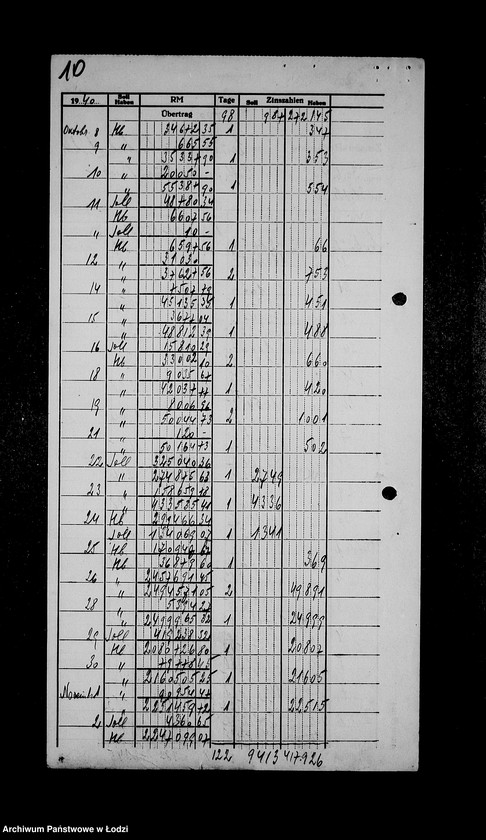 10
1940. Soll Haben RM Tage Soll Zinszahlen Haben
Übertrag 98 987 272145
Oktob. 8 Hb 34672 35 1 347
9 " 665 55
" 35337 90 1 353
10 " 20050 -
" 55387 90 1 554
11 Soll 48780 34
Hb 6607 56
" Soll 10 -
Hb 6597 56 1 66
12 " 31030
" 37627 56 2 753
14 " 7507 79
" 45135 35 1 451
15 " 3677 04
" 48812 39 1 488
16 Soll 15810 29
Hb 33002 10 2 660
18 " 9035 67
" 42037 77 1 420
19 " 8006 96
" 50044 73 2 1001
21 " 120 -
" 50164 73 1 502
22 Soll 325040 36
" 274875 63 1 2749
23 " 158659 18
" 433535 41 1 4336
24 Hb 299466 34
Soll 134069 07 1 1341
25 Hb 170946 67
Hb 36879 60 1 369
26 " 2457691 45
" 2494571 05 2 49891
28 " 5394 27
" 2499965 32 1 24999
29 Soll 419238 52
Hb 2080726 80 1 20807
30 "
" 2160505 25 1 21605
Novemb. 1 " 90954 47
" 2251459 72 1 22515
2 Soll 4360 65
Hb 2247099 07
122 9413 417926
Archiwum Państwowe w Łodzi